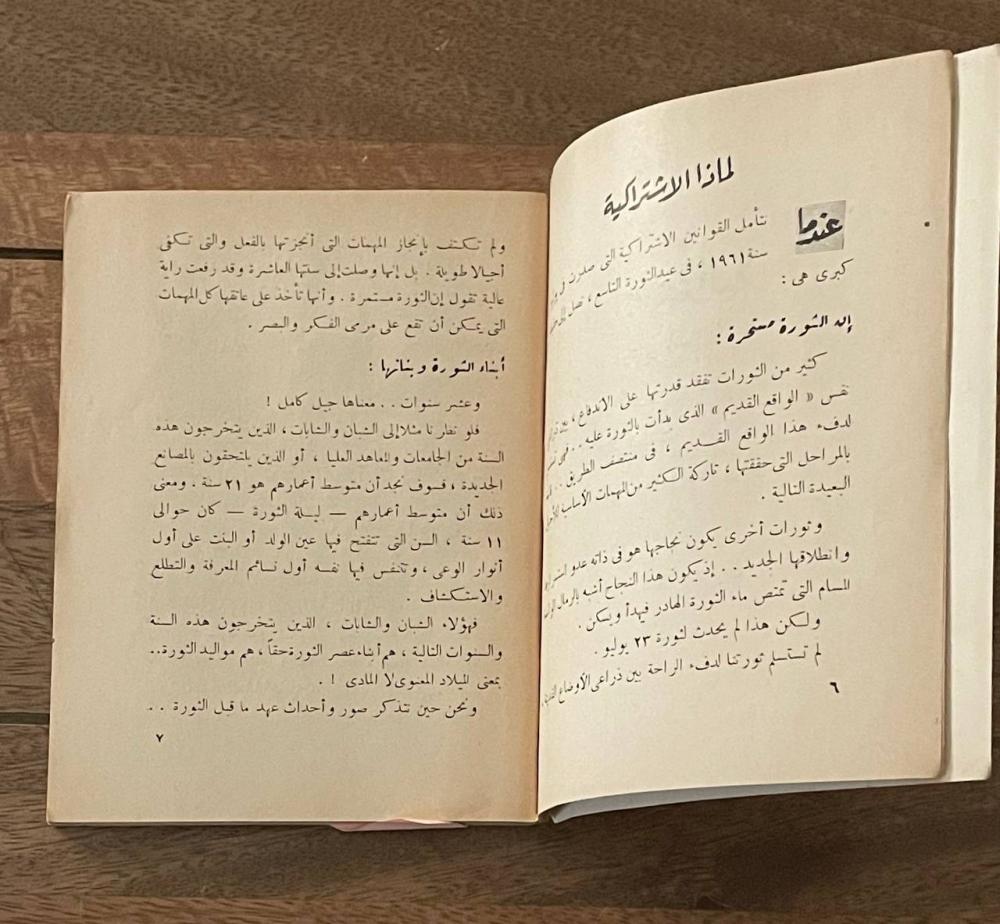 لماذا الاشتراكية
عندما نتأمل القوانين الاشتراكية التى صدرت فى
سنة ١٩٦١ ، فى عيد الثورة التاسع ، نصل إلى
كبرى هى :
إن الثورة مستمرة :
كثير من الثورات تفقد قدرتها على الاندفاع ، بين
نفس « الواقع القديم » الذى بدأت بالثورة عليه . .
لدفء هذا الواقع القـديم ، فى منتصف الطريق . .
بالمراحل التى حققتها ، تاركة الكثير من المهمات الأساسية
البعيدة التالية .
وثورات أخرى يكون نجاحها هو فى ذاته عدو
وانطلاقها الجديد . . إذ يكون هذا النجاح أشبه بالرمال
المسام التى تمتص ماء الثورة الهادر فيهدأ ويسكن .
ولكن هذا لم يحدث لثورة ٢٣ يوليو .
لم تستسلم ثورتنا لدفء الراحة بين ذراعى الأوضاع
٦
ولم تكتف بإنجاز المهمات التى أنجزتها بالفعل والتى تكفى
أجيالا طويلة . بل إنها وصلت إلى سنتها العاشرة وقد رفعت راية
عالية تقول إن الثورة مستمرة . وأنها تأخذ على عاتقها كل المهمات
التى يمكن أن تقع على مرمى الفكر والبصر .
أبناء الثورة وبناتها :
وعشر سنوات . . معناها جيل كامل !
فلو نظرنا مثلا إلى الشبان والشابات ، الذين يتخرجون هذه
السنة من الجامعات والمعاهد العليا ، أو الذين يلتحقون بالمصانع
الجديدة ، فسوف نجد أن متوسط أعمارهم هو ٢١ سنة . ومعنى
ذلك أن متوسط أعمارهم — ليلة الثورة — كان حوالى
١١ سنة ، السن التى تتفتح فيها عين الولد أو البنت على أول
أنوار الوعى ، وتتنفس فيها نفسه أول نسائم المعرفة والتطلع
والاستكشاف .
فهؤلاء الشبان والشابات ، الذين يتخرجون هذه السنة
والسنوات التالية ، هم أبناء عصر الثورة حقاً ، هم مواليد الثورة . .
بمعنى الميلاد المعنوى لا المادى ! .
ونحن حين نتذكر صور وأحداث عهد ما قبل الثورة . .
٧